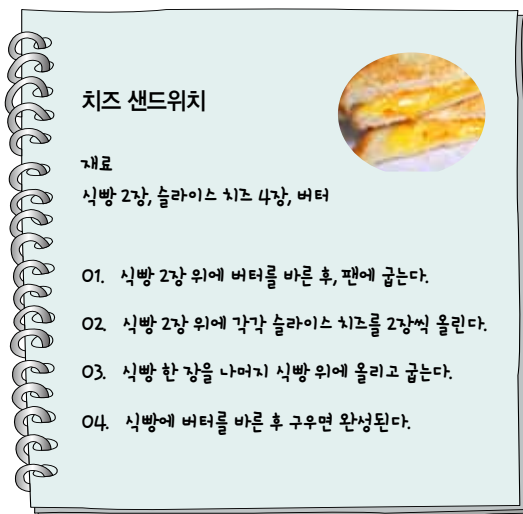 치즈 샌드위치
재료
식빵 2장, 슬라이스 치즈 4장, 버터
01. 식빵 2장 위에 버터를 바른 후, 팬에 굽는다.
02. 식빵 2장 위에 각각 슬라이스 치즈를 2장씩 올린다.
03. 식빵 한 장을 나머지 식빵 위에 올리고 굽는다.
04. 식빵에 버터를 바른 후 구우면 완성된다.